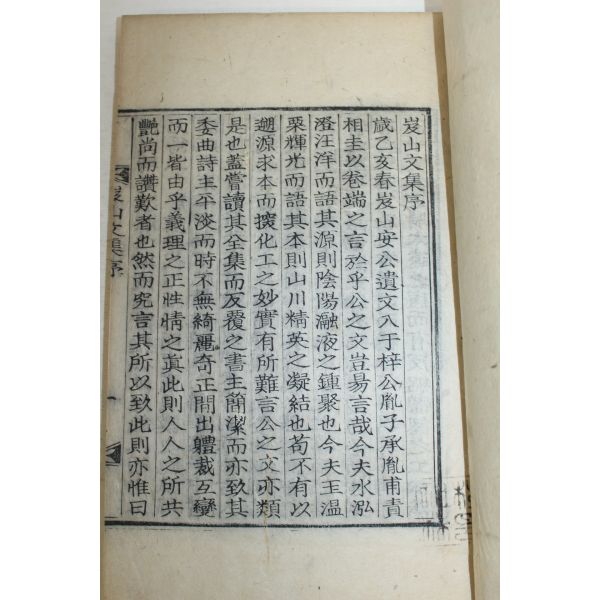 岌山文集序
歲乙亥春岌山安公遺文入于梓公胤子承胤甫責
相圭以卷端之言於乎公之文豈易言哉今夫水泓
澄汪洋而語其源則陰陽瀜液之鍾聚也今夫玉溫
栗輝光而語其本則山川精英之凝結也苟不有以
遡源求本而搜化工之妙實有所難言公之文亦類
是也蓋嘗讀其全集而反覆之書主簡潔而亦致其
委曲詩主平淡而時不無綺麗奇正間出軆裁互變
而一皆由乎義理之正性情之眞此則人人之所共
艷尚而讚歎者也然而究言其所以致此則亦惟曰
岌山文集序